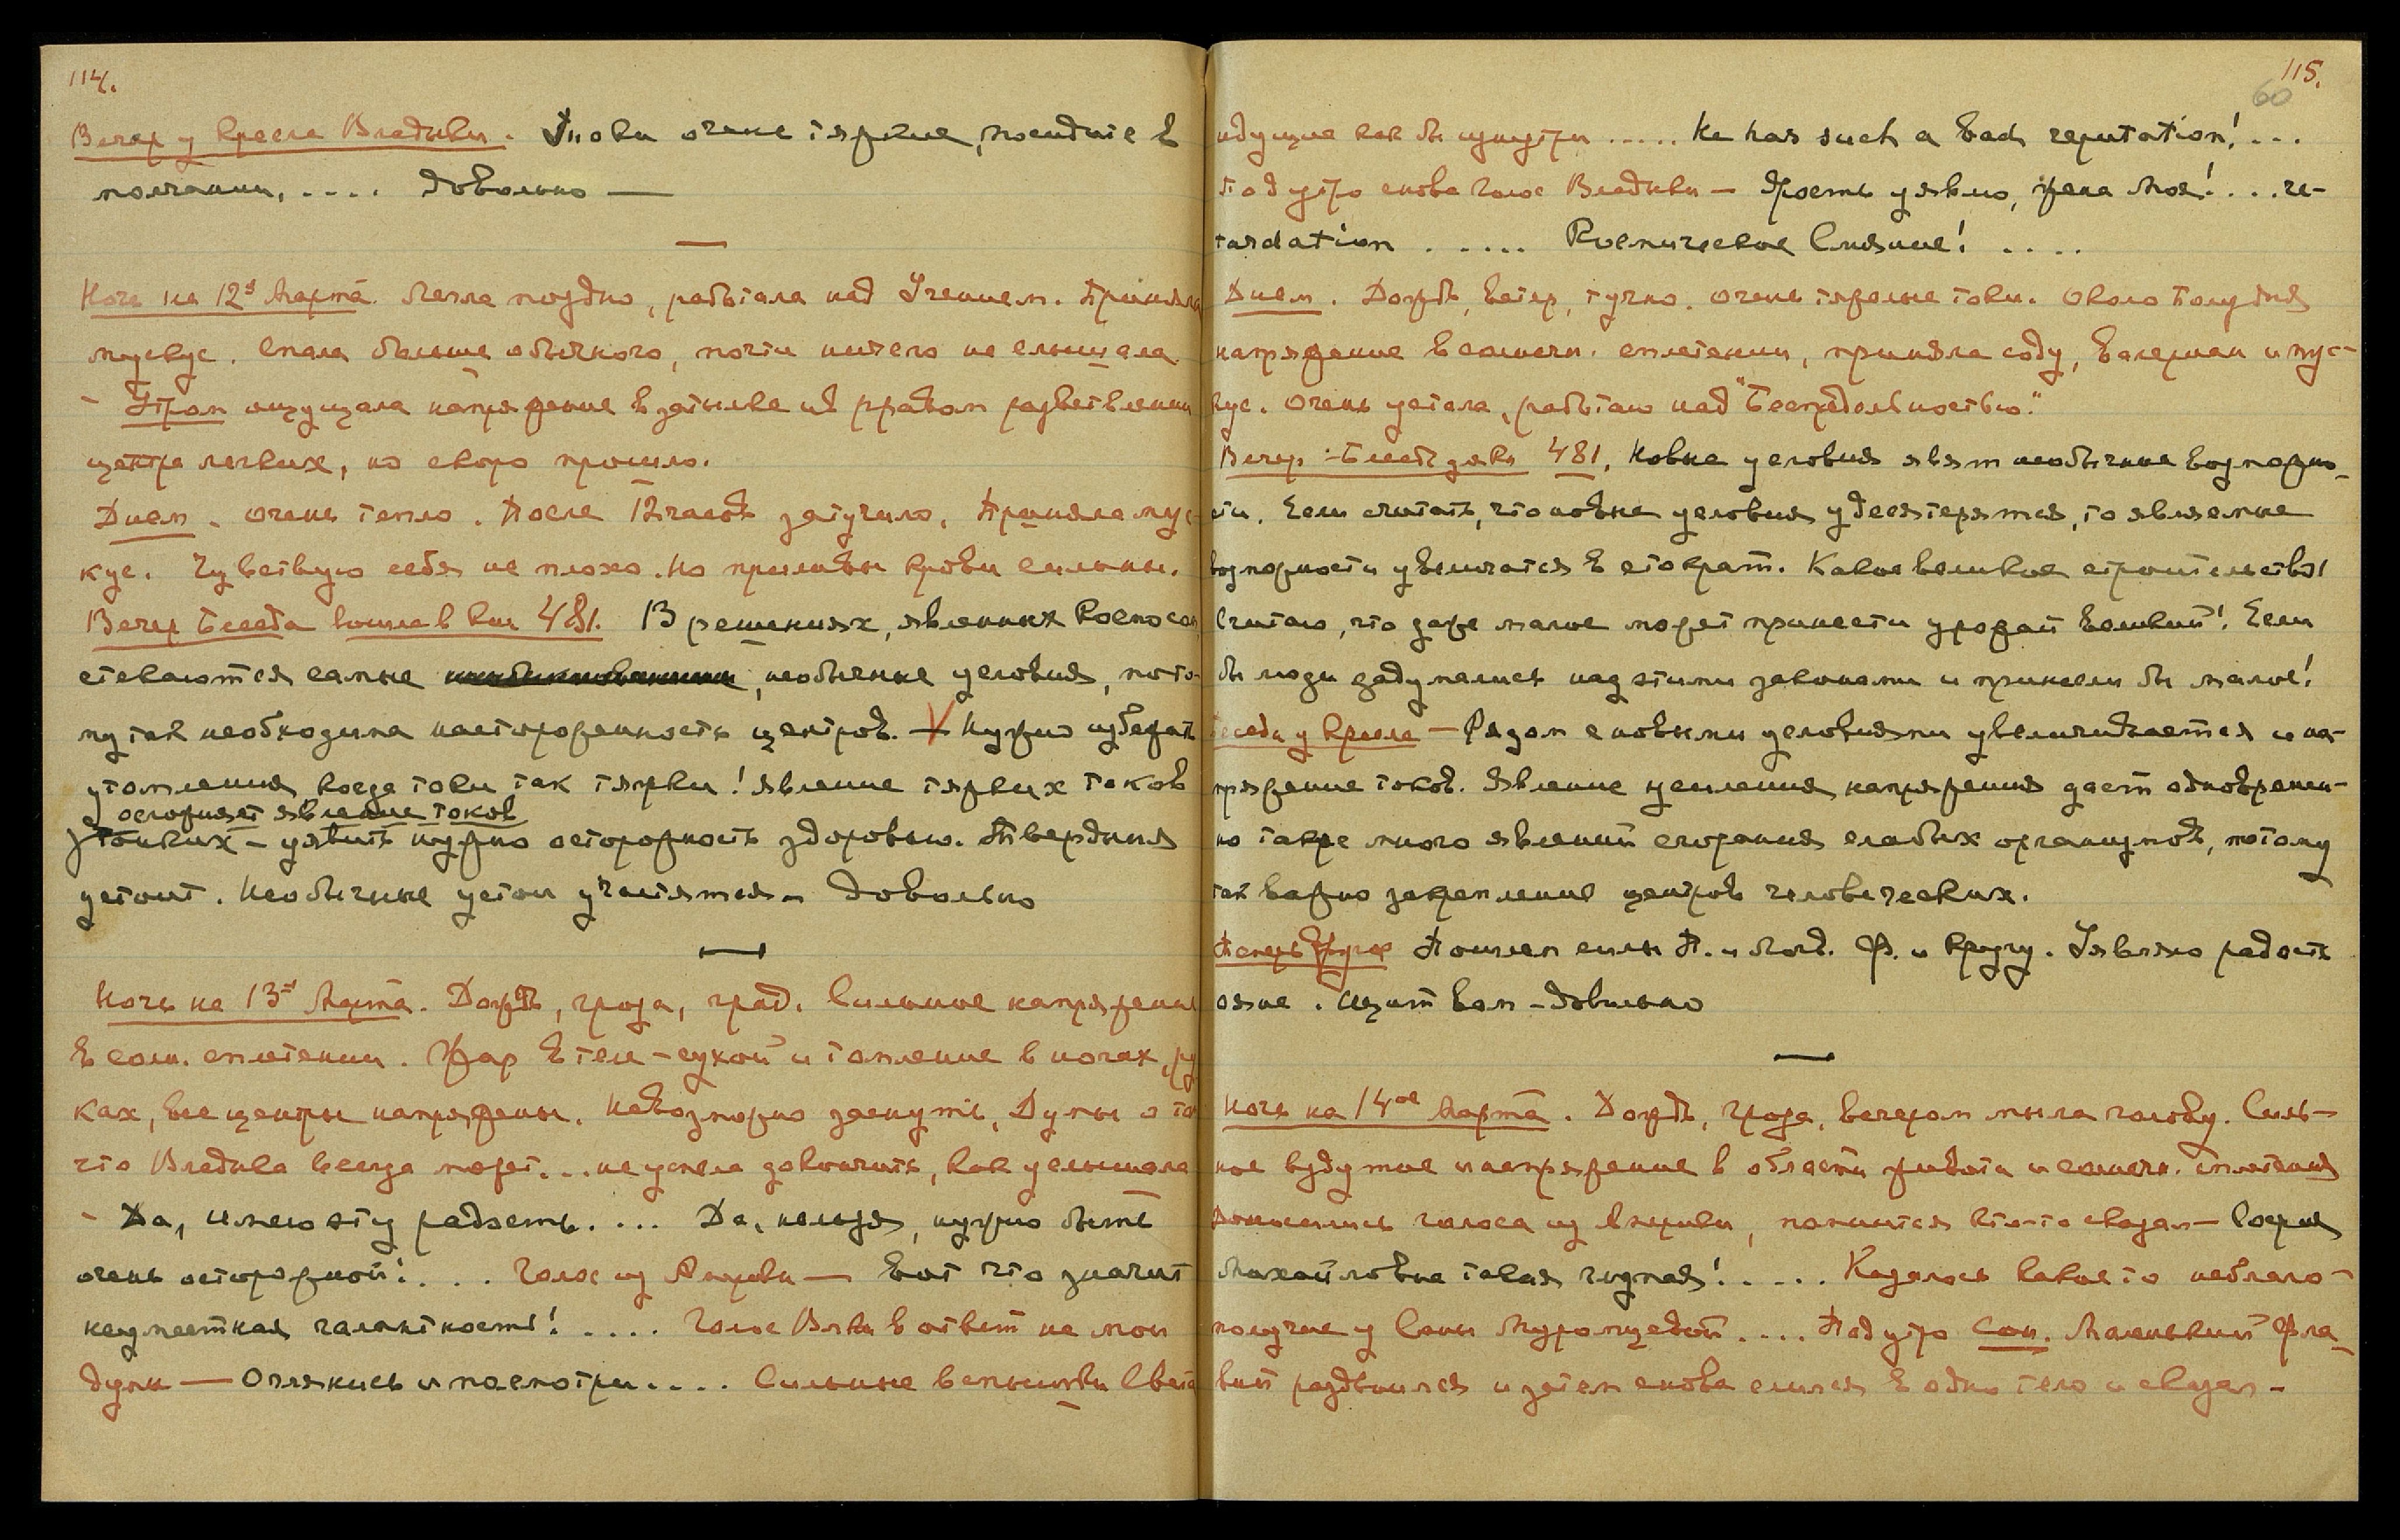 114.
Вечер у кресла Владыки. Токи очень тяжкие, посидите в
молчании, .... Довольно —
Ночь на 12ᵒᵉ Марта. Легла поздно, работала над Учением. Приняла
мускус. Спала больше обычного, почти ничего не слышала.
- Утром ощущала напряжение в затылке и в правом разветвлении
центра легких, но скоро прошло.
Днем. Очень тепло. После 12 часов затучило. Приняла мус-
кус. Чувствую себя не плохо. Но приливы крови сильны.
Вечер Беседа вошла в кн 481. В решениях, явленных Космосом
стекаются самые необычные условия, пото-
му так необходима настороженность центров. — Нужно избегать
утомления когда токи так тяжки! Явление тяжких токов
осложняет явление токов
тонких — уявить нужно осторожность здоровью. Твердыня
устоит. Необычные устои участятся — Довольно
Ночь на 13ᵒᵉ Марта. Дождь, гроза, град. Сильное напряжение
в солн. сплетении. Жар в теле — сухой и томление в ногах, ру
ках, все центры напряжены. Невозможно заснуть. Думы о том
что Владыка всегда может... не успела докончить, как услышала
- Да, имею эту радость. ... Да, нельзя, нужно быть
очень осторожной! ... Голос из Америки — Вот что значит
неуместная галантность! .... Голос Влки в ответ на мои
думы — Оглянись и посмотри.... Сильные вспышки Света
115.
60
идущие как бы изнутри ..... He has such a bad reputation! ...
Под утро снова Голос Владыки — Ярость уявлю, жена Моя! ... re-
tardation ..... Космическое Слияние! ....
Днем. Дождь, ветер, тучно. Очень тяжелые токи. Около полудня
напряжение в солнечн. сплетении, приняла соду, валериан и мус-
кус. Очень устала, работаю над "Беспредельностью."
Вечер: Беседа для кн 481. Новые условия явят необычные возможно-
сти. Если считать, что новые условия удесятерятся, то являемые
возможности увеличатся в сто крат. Какое великое строительство!
Считаю, что даже малое может принести урожай великий! Если
бы люди задумались над этими законами и принесли бы малое!
Беседа у кресла — Рядом с новыми условиями увеличивается и на-
пряжение токов. Явление усиления напряжения дает одновремен-
но также много явлений сгорания слабых организмов, потому
так важно закрепление центров человеческих.
Пошлем силы П. и Мод. Ф. и кругу. Уявляю радость
огне. Щит вам — Довольно
Ночь на 14ᵒᵉ Марта. Дождь, гроза, вечером мыла голову. Силь-
ное вздутие и напряжение в области живота и солнечн. сплетения
Доносились голоса из Америки, помнится кто-то сказал — Софья
Михайловна такая чудная! ..... Казалось какое то неблаго-
получие у Сони Муромцевой .... Под утро сон. Маленький Фла-
вий раздвоился и затем снова слился в одно тело и сказал —